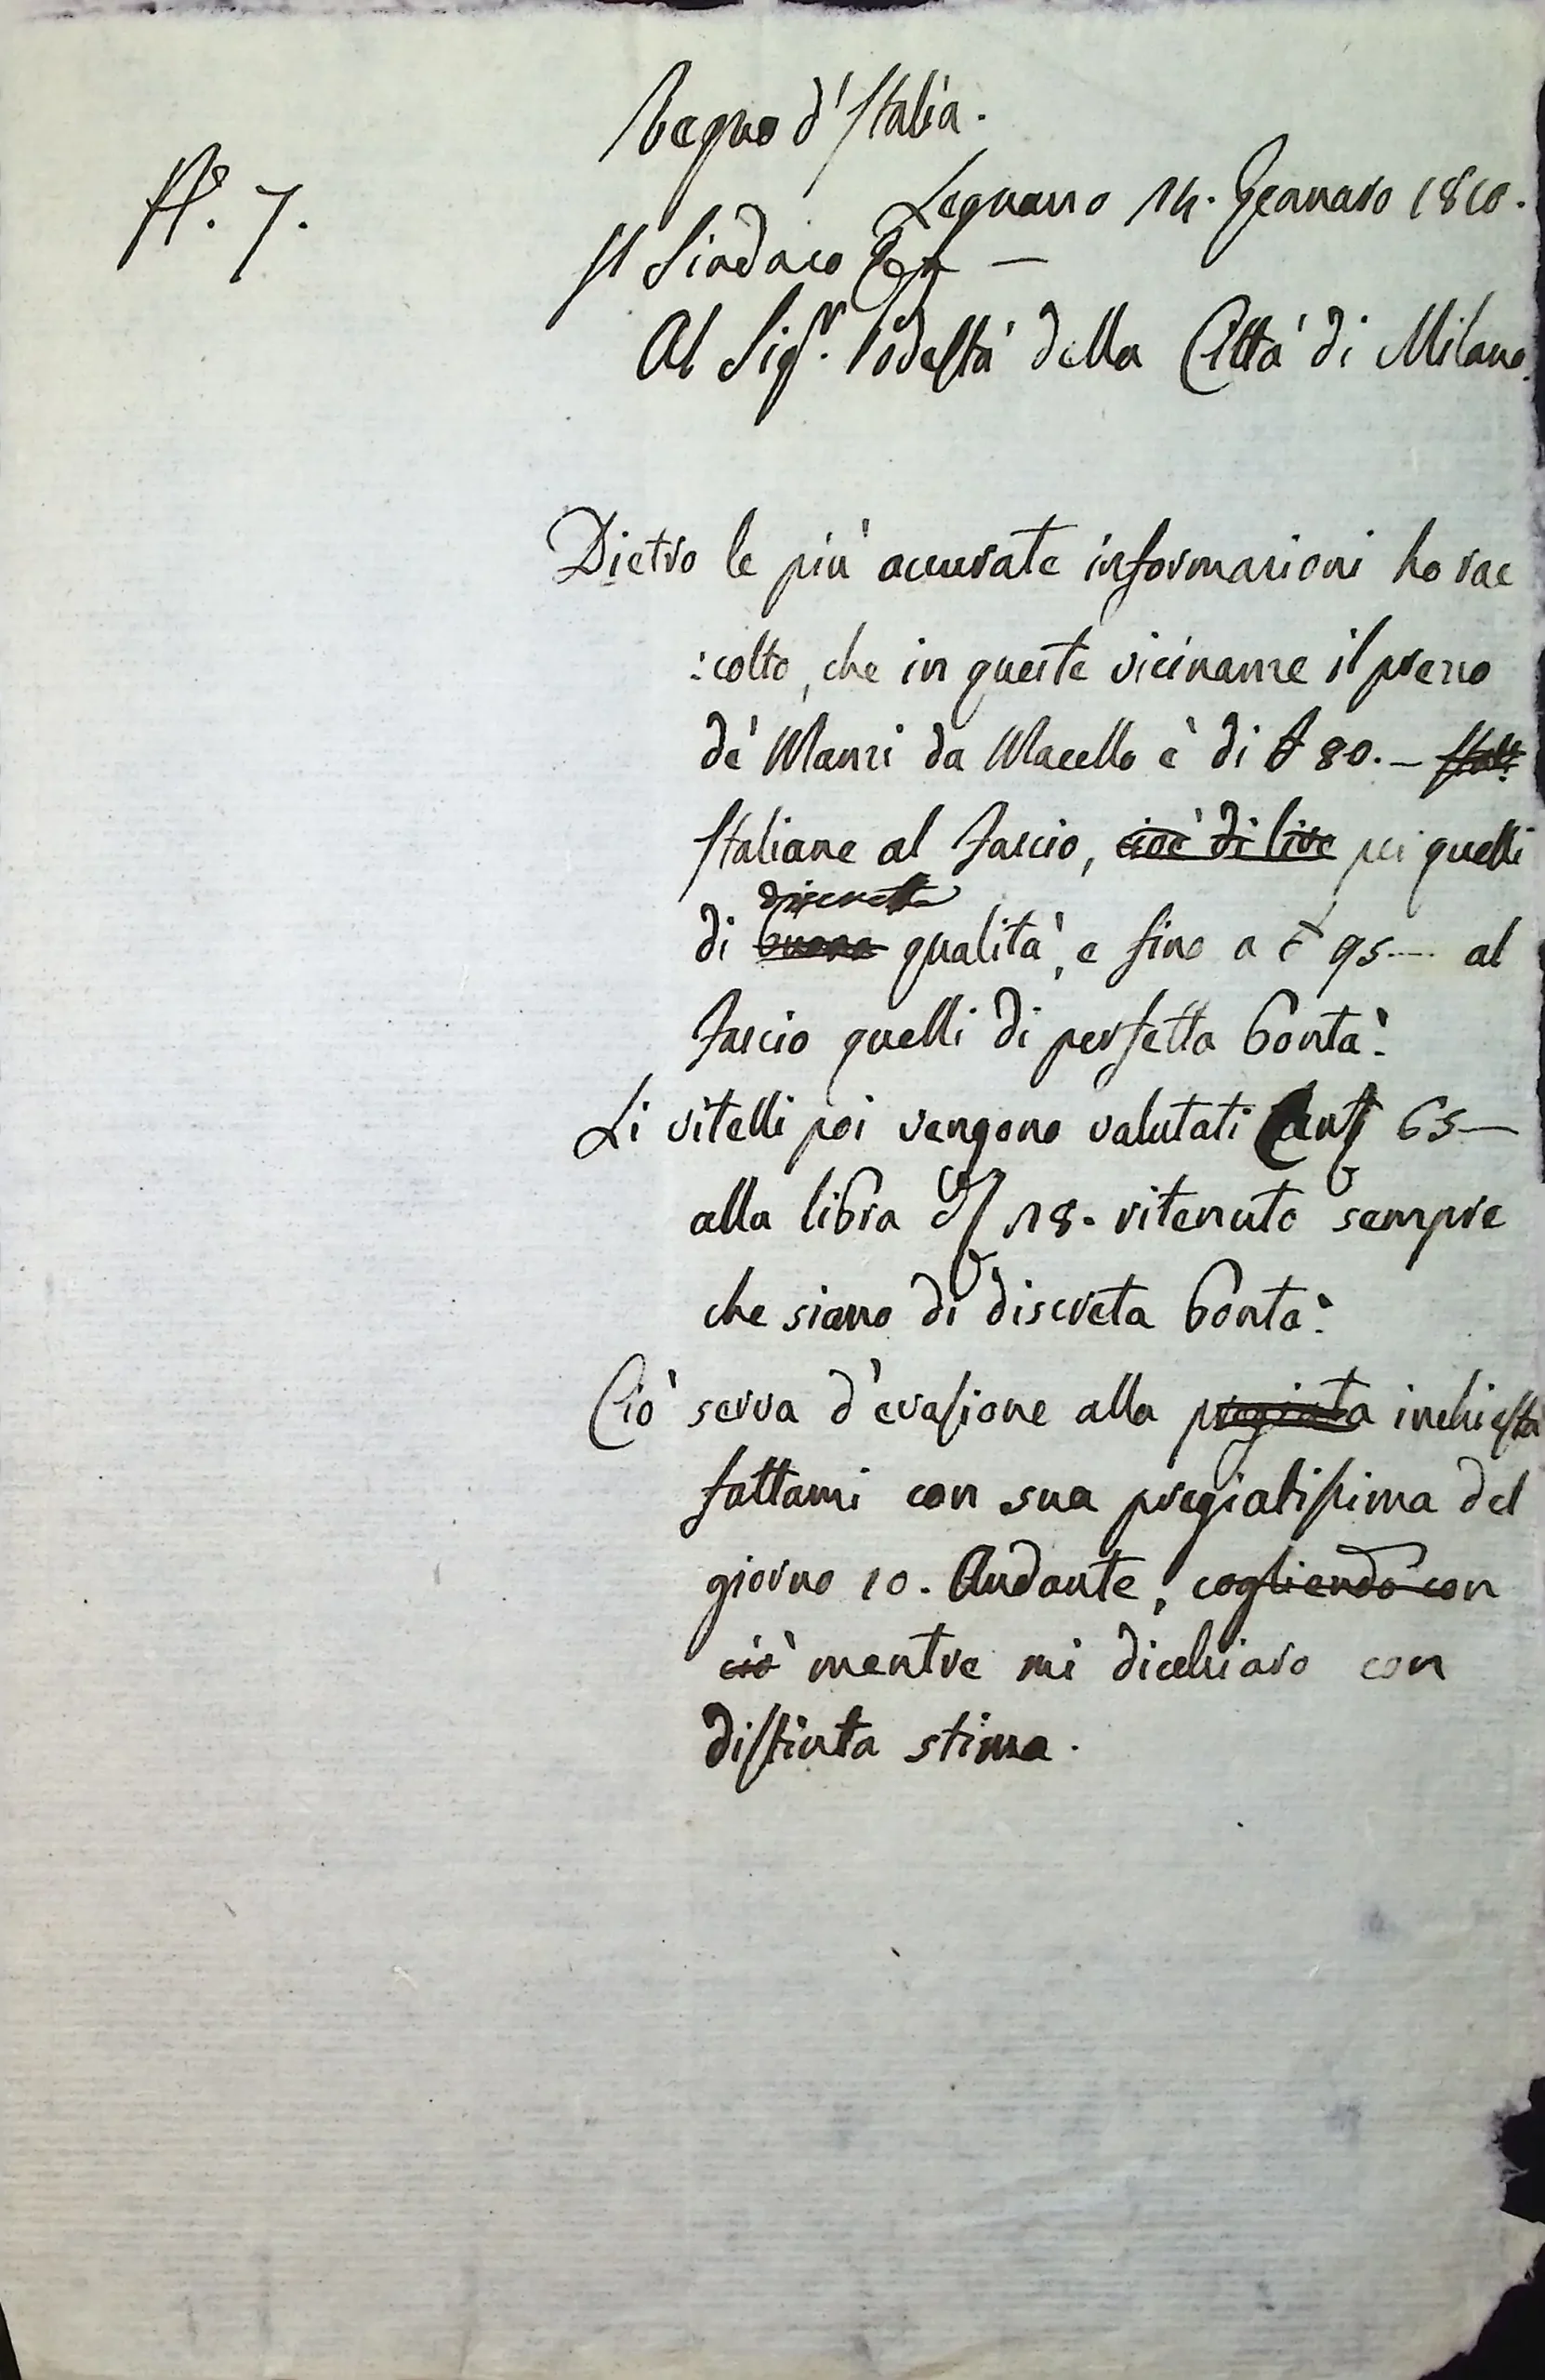 Regno d'Italia.
N.° 7.
Legnano 14. Gennaro 1810.
Il Sindaco
Al Sig.r Podestà della Città di Milano.
Dietro le più accurate informazioni ho rac
:colto, che in queste vicinanze il prezzo
de' Manzi da Macello è di £ 80.— Ital:
Italiane al Fascio, cioè di lire pei quelli
discreta
di buona qualità, e fino a £ 95.— al
Fascio quelli di perfetta bontà.
Li vitelli poi vengono valutati Cent 65—
alla libra d' 18. ritenuto sempre
che siano di discreta bontà.
Ciò serva d'evasione alla pregiata inchiesta
fattami con sua pregiatissima del
giorno 10. Andante, cogliendo con
ciò mentre mi dicchiaro con
distinta stima.